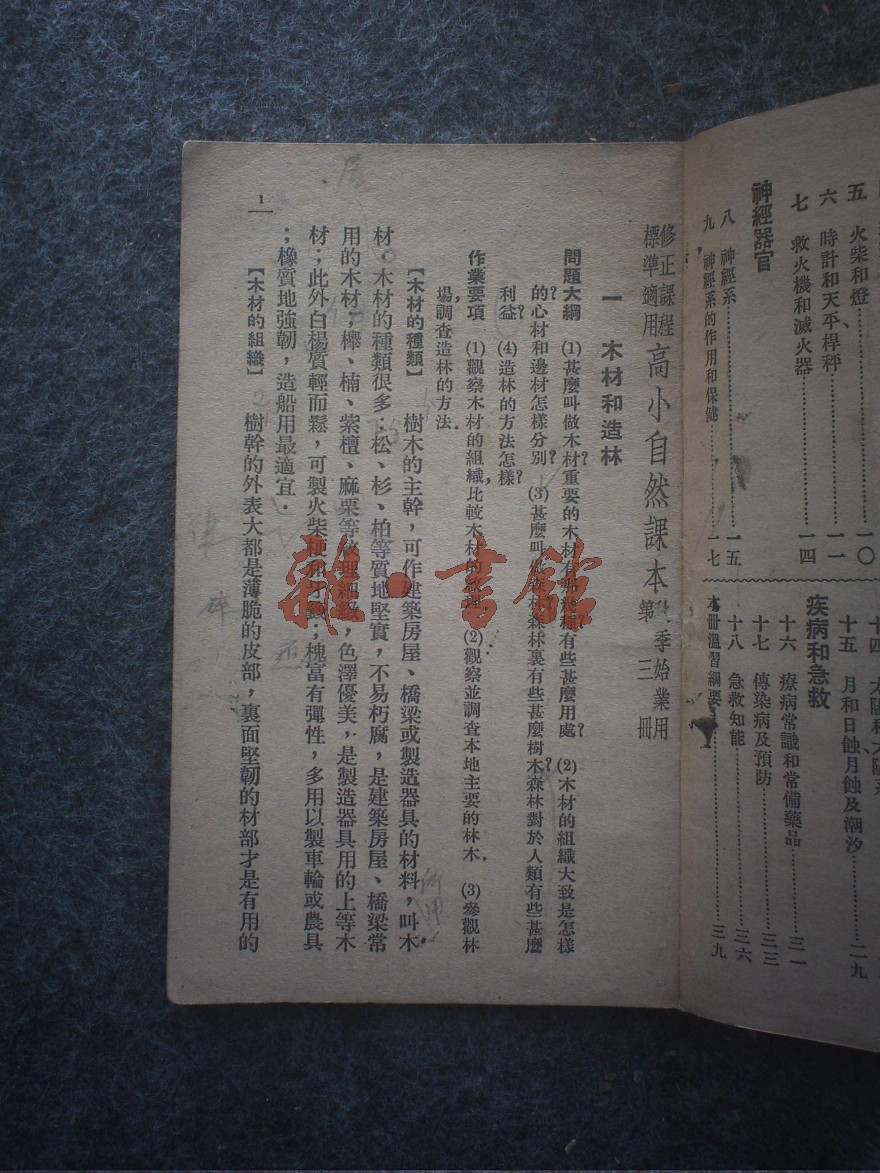 神經器官
五 火柴和燈
六 時計和天平、桿秤 一一
七 救火機和滅火器 一四
八 神經系 一五
九 神經系的作用和保健 一七
十五 月和日蝕、月蝕及潮汐 二九
疾病和急救
十六 療病常識和常備藥品 三一
十七 傳染病及預防 三三
十八 急救知能 三六
本冊溫習綱要 三九
修正課程
標準適用
高小自然課本
季始業用
第三冊
一 木材和造林
問題大綱 (1)甚麼叫做木材?重要的木材有那幾種?有些甚麼用處? (2)木材的組織大致是怎樣
的?心材和邊材怎樣分別? (3)甚麼叫做森林?森林裏有些甚麼樹木?森林對於人類有些甚麼
利益? (4)造林的方法怎樣?
作業要項 (1)觀察木材的組織,比較木材的紋理. (2)觀察並調查本地主要的林木. (3)參觀林
場,調查造林的方法.
【木材的種類】 樹木的主幹,可作建築房屋、橋梁或製造器具的材料,叫木
材.木材的種類很多:松、杉、柏等質地堅實,不易朽腐,是建築房屋、橋梁常
用的木材;櫸、楠、紫檀、麻栗等紋理細緻,色澤優美,是製造器具用的上等木
材;此外白楊質輕而鬆,可製火柴梗和牙籤;槐富有彈性,多用以製車輪或農具
;橡質地強韌,造船用最適宜.
【木材的組織】 樹幹的外表大都是薄脆的皮部,裏面堅韌的材部才是有用的
1
雜·書館